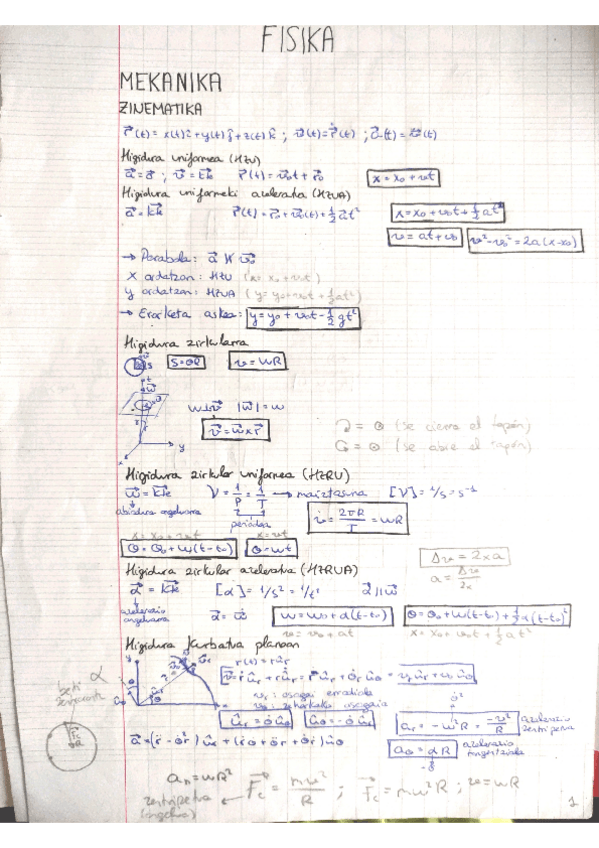 FISIKA
MEKANIKA
ZINEMATIKA
r⃗(t) = x(t)î + y(t)ĵ + z(t)k̂ ; v⃗(t) = ṙ⃗(t) ; a⃗(t) = v̇⃗(t)
Higidura uniformea (HZU)
a⃗ = 0⃗ ; v⃗ = kte r⃗(t) = v⃗₀t + r⃗₀ x = x₀ + vt
Higidura uniformeki azeleratua (HZUA)
a⃗ = kte r⃗(t) = r⃗₀ + v⃗₀(t) + ½a⃗t² x = x₀ + v₀t + ½at²
v = at + v₀ v² - v₀² = 2a(x - x₀)
→ Parabola: a⃗ ∦ v⃗₀
X ardatzan: HZU (x = x₀ + vt)
y ardatzan: HZUA (y = y₀ + v₀t + ½at²)
→ Erorketa askea: y = y₀ + v₀t - ½gt²
Higidura zirkularra
S = θR v = ωR
ω⊥v⃗ |ω⃗| = ω
v⃗ = ω⃗ × r⃗
= ⊗ (se cierra el tapón)
= ⊙ (se abre el tapón)
x y
Higidura zirkular uniformea (HZRU)
ω⃗ = kte ν = 1/T → maiztasuna [ν] = 1/s = s⁻¹
abiadura angeluarra periodoa v = 2πR/T = ωR
x = x₀ + vt x = vt
θ = θ₀ + ω(t - t₀) θ = ωt
Δv = 2xa
a = Δv/2x
Higidura zirkular azeleratua (HZRUA)
α⃗ = kte [α] = 1/s² = 1/t² α⃗ ∥ ω⃗
azelerazio angeluarra α⃗ = ω̇⃗ ω = ω₀ + α(t - t₀) θ = θ₀ + ω(t - t₀) + ½α(t - t₀)²
v = v₀ + at x = x₀ + v₀t + ½at²
Higidura kurbatua planoan
r(t) = rûr
v⃗ = ṙûr + rû̇r = ṙûr + θ̇rûθ = vrûr + vθûθ
vr: osagai erradiala
vθ: zeharkako osagaia
û̇r = θ̇ûθ û̇θ = -θ̇ûr ar = -ω²R = -v²/R azelerazio zentripetua
a⃗ = (r̈ - θ̇²r)ûr + (rθ̈ + θ̇ṙ + θ̇ṙ)ûθ aθ = αR azelerazio tangentziala
an = ωR²
zentripetua F⃗c = mv²/R ; F⃗c = mω²R ; v = ωR
1